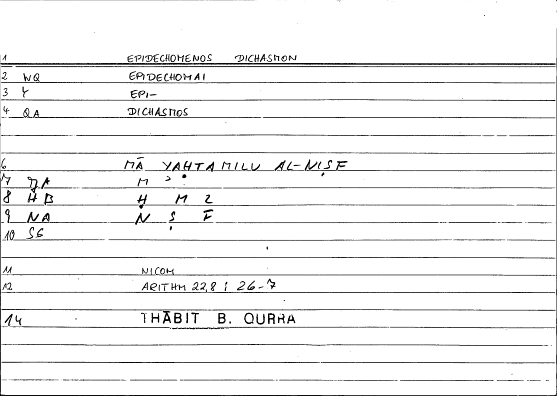 1 EPIDECHOMENOS DICHASMON
2 WQ EPIDECHOMAI
3 Y EPI-
4 QA DICHASMOS
6 MĀ YAḤTAMILU AL-NIṢF
7 M
8 ḤB Ḥ M L
9 NA N Ṣ F
10 SG
11 NICOM
12 ARITHM 22,8 ; 26-7
14 THĀBIT B. QURRA